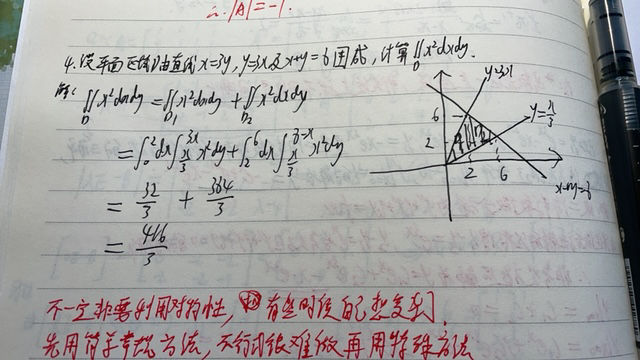 ∴ |A|=-1.
4.设平面区域D由直线x=3y,y=3x及x+y=8围成,计算∬x²dxdy.
D
解: ∬x²dxdy = ∬x²dxdy + ∬x²dxdy
D D₁ D₂
= ∫₀²dx∫_{x/3}^{3x}x²dy + ∫₂⁶dx∫_{x/3}^{8-x}x²dy
= 32/3 + 384/3
= 416/3
y=3x
y=x/3
6
2
2 6
x+y=8
不一定非要利用对称性, 有些时候自己想复杂了
先用简单常规方法, 不行或很难做再用特殊方法